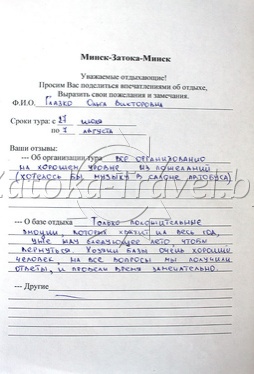 Минск-Затока-Минск
Уважаемые отдыхающие!
Просим Вас поделиться впечатлениями об отдыхе,
Выразить свои пожелания и замечания.
Ф.И.О. Глазко Ольга Викторовна
Сроки тура: с 27 июля
по 7 августа
Ваши отзывы:
--- Об организации тура все организовано
на хорошем уровне из пожеланий
(хотелось бы музыки в салоне автобуса)
--- О базе отдыха Только положительные
эмоции, которых хватит на весь год,
уже жду следующее лето, чтобы
вернуться. Хозяин базы очень хороший
человек, на все вопросы мы получили
ответы, и провели время замечательно.
--- Другие